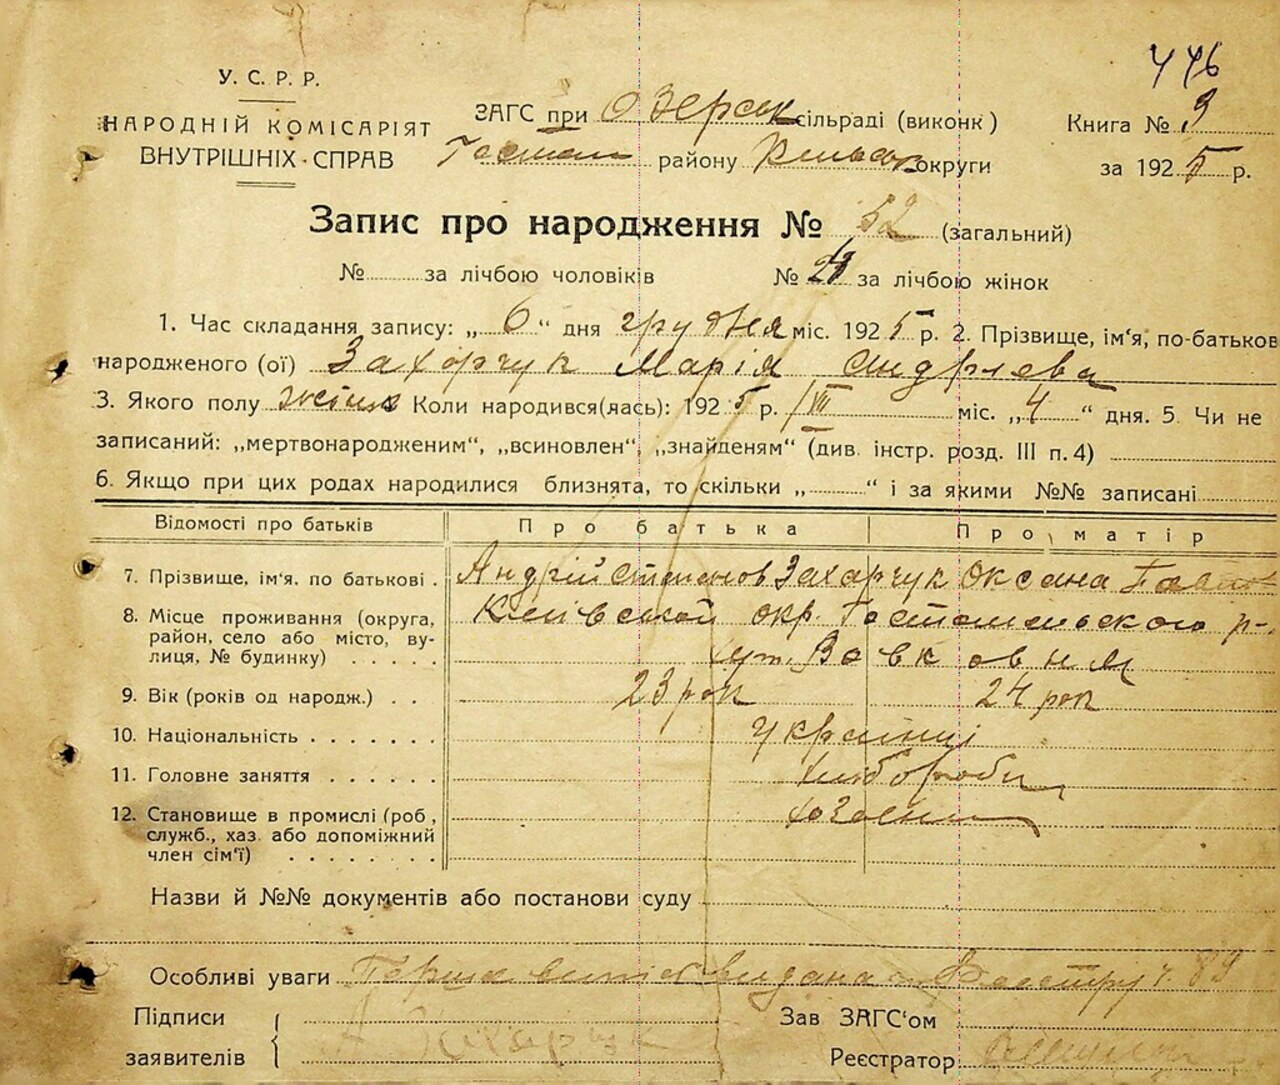 446
У. С. Р. Р.
НАРОДНІЙ КОМІСАРІЯТ
ВНУТРІШНІХ СПРАВ
ЗАГС при Озерськ сільраді (виконк)
Гостом району Київськ округи
Книга № 9
за 1925 р.
Запис про народження № 52 (загальний)
№ за лічбою чоловіків № за лічбою жінок
1. Час складання запису: „6“ дня грудня міс. 1925 р. 2. Прізвище, ім‘я, по-батьков
народженого (ої) Захорчук Марія Андрієва
3. Якого полу жіноч Коли народився(лась): 1925 р. /XII міс. „4“ дня. 5. Чи не
записаний: „мертвонародженим“, „всиновлен“, „знайденям“ (див. інстр. розд. III п. 4)
6. Якщо при цих родах народилися близнята, то скільки „ “ і за якими №№ записані
Відомості про батьків Про батька Про матір
7. Прізвище, ім‘я, по батькові Андрій Степанов Захарчук Оксана
8. Місце проживання (округа, Київської окр. Гостомельского р-.
район, село або місто, ву-
лиця, № будинку) хут. Вовковня
9. Вік (років од народж.) 23 рок 24 рок
10. Національність Українці
11. Головне заняття хлібороби
12. Становище в промислі (роб,
служб., хаз. або допоміжний
член сім‘ї)
Назви й №№ документів або постанови суду
Особливі уваги Перша випись видана Реєстру ч. 89
Підписи
заявителів А Захарчук
Зав ЗАГС‘ом
Реєстратор